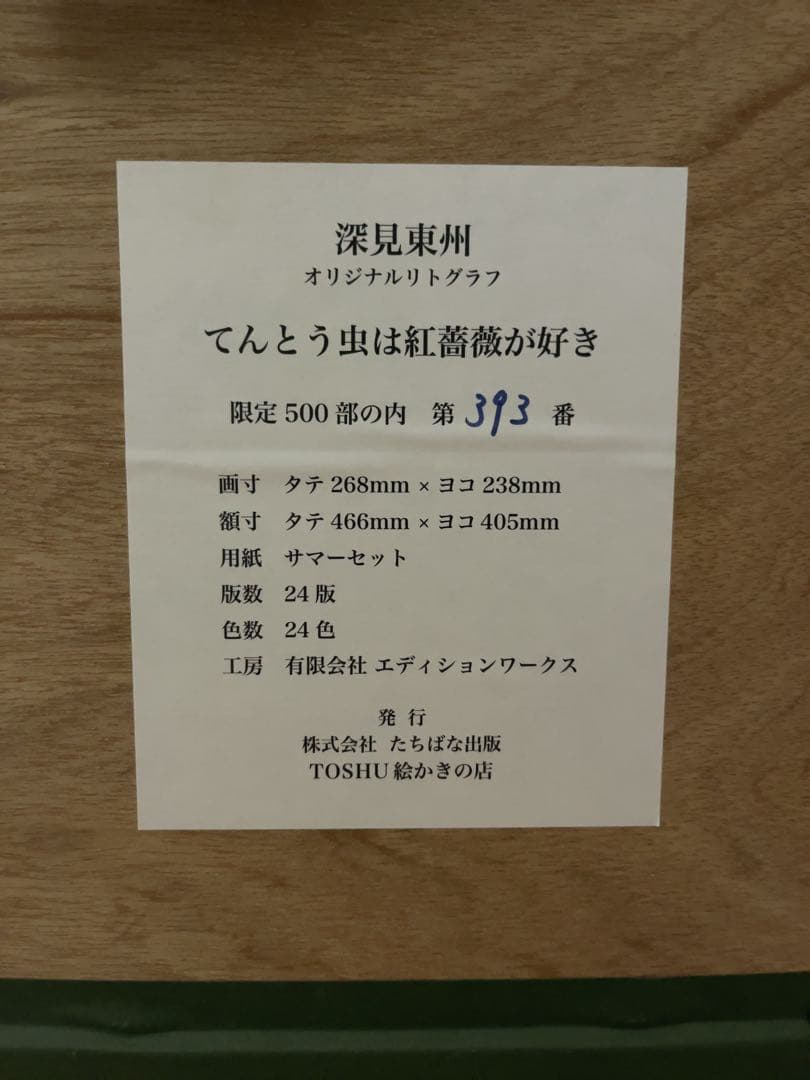 深見東州
オリジナルリトグラフ
てんとう虫は紅薔薇が好き
限定500部の内 第 393 番
画寸 タテ268mm×ヨコ238mm
額寸 タテ466mm×ヨコ405mm
用紙 サマーセット
版数 24版
色数 24色
工房 有限会社 エディションワークス
発 行
株式会社 たちばな出版
TOSHU絵かきの店